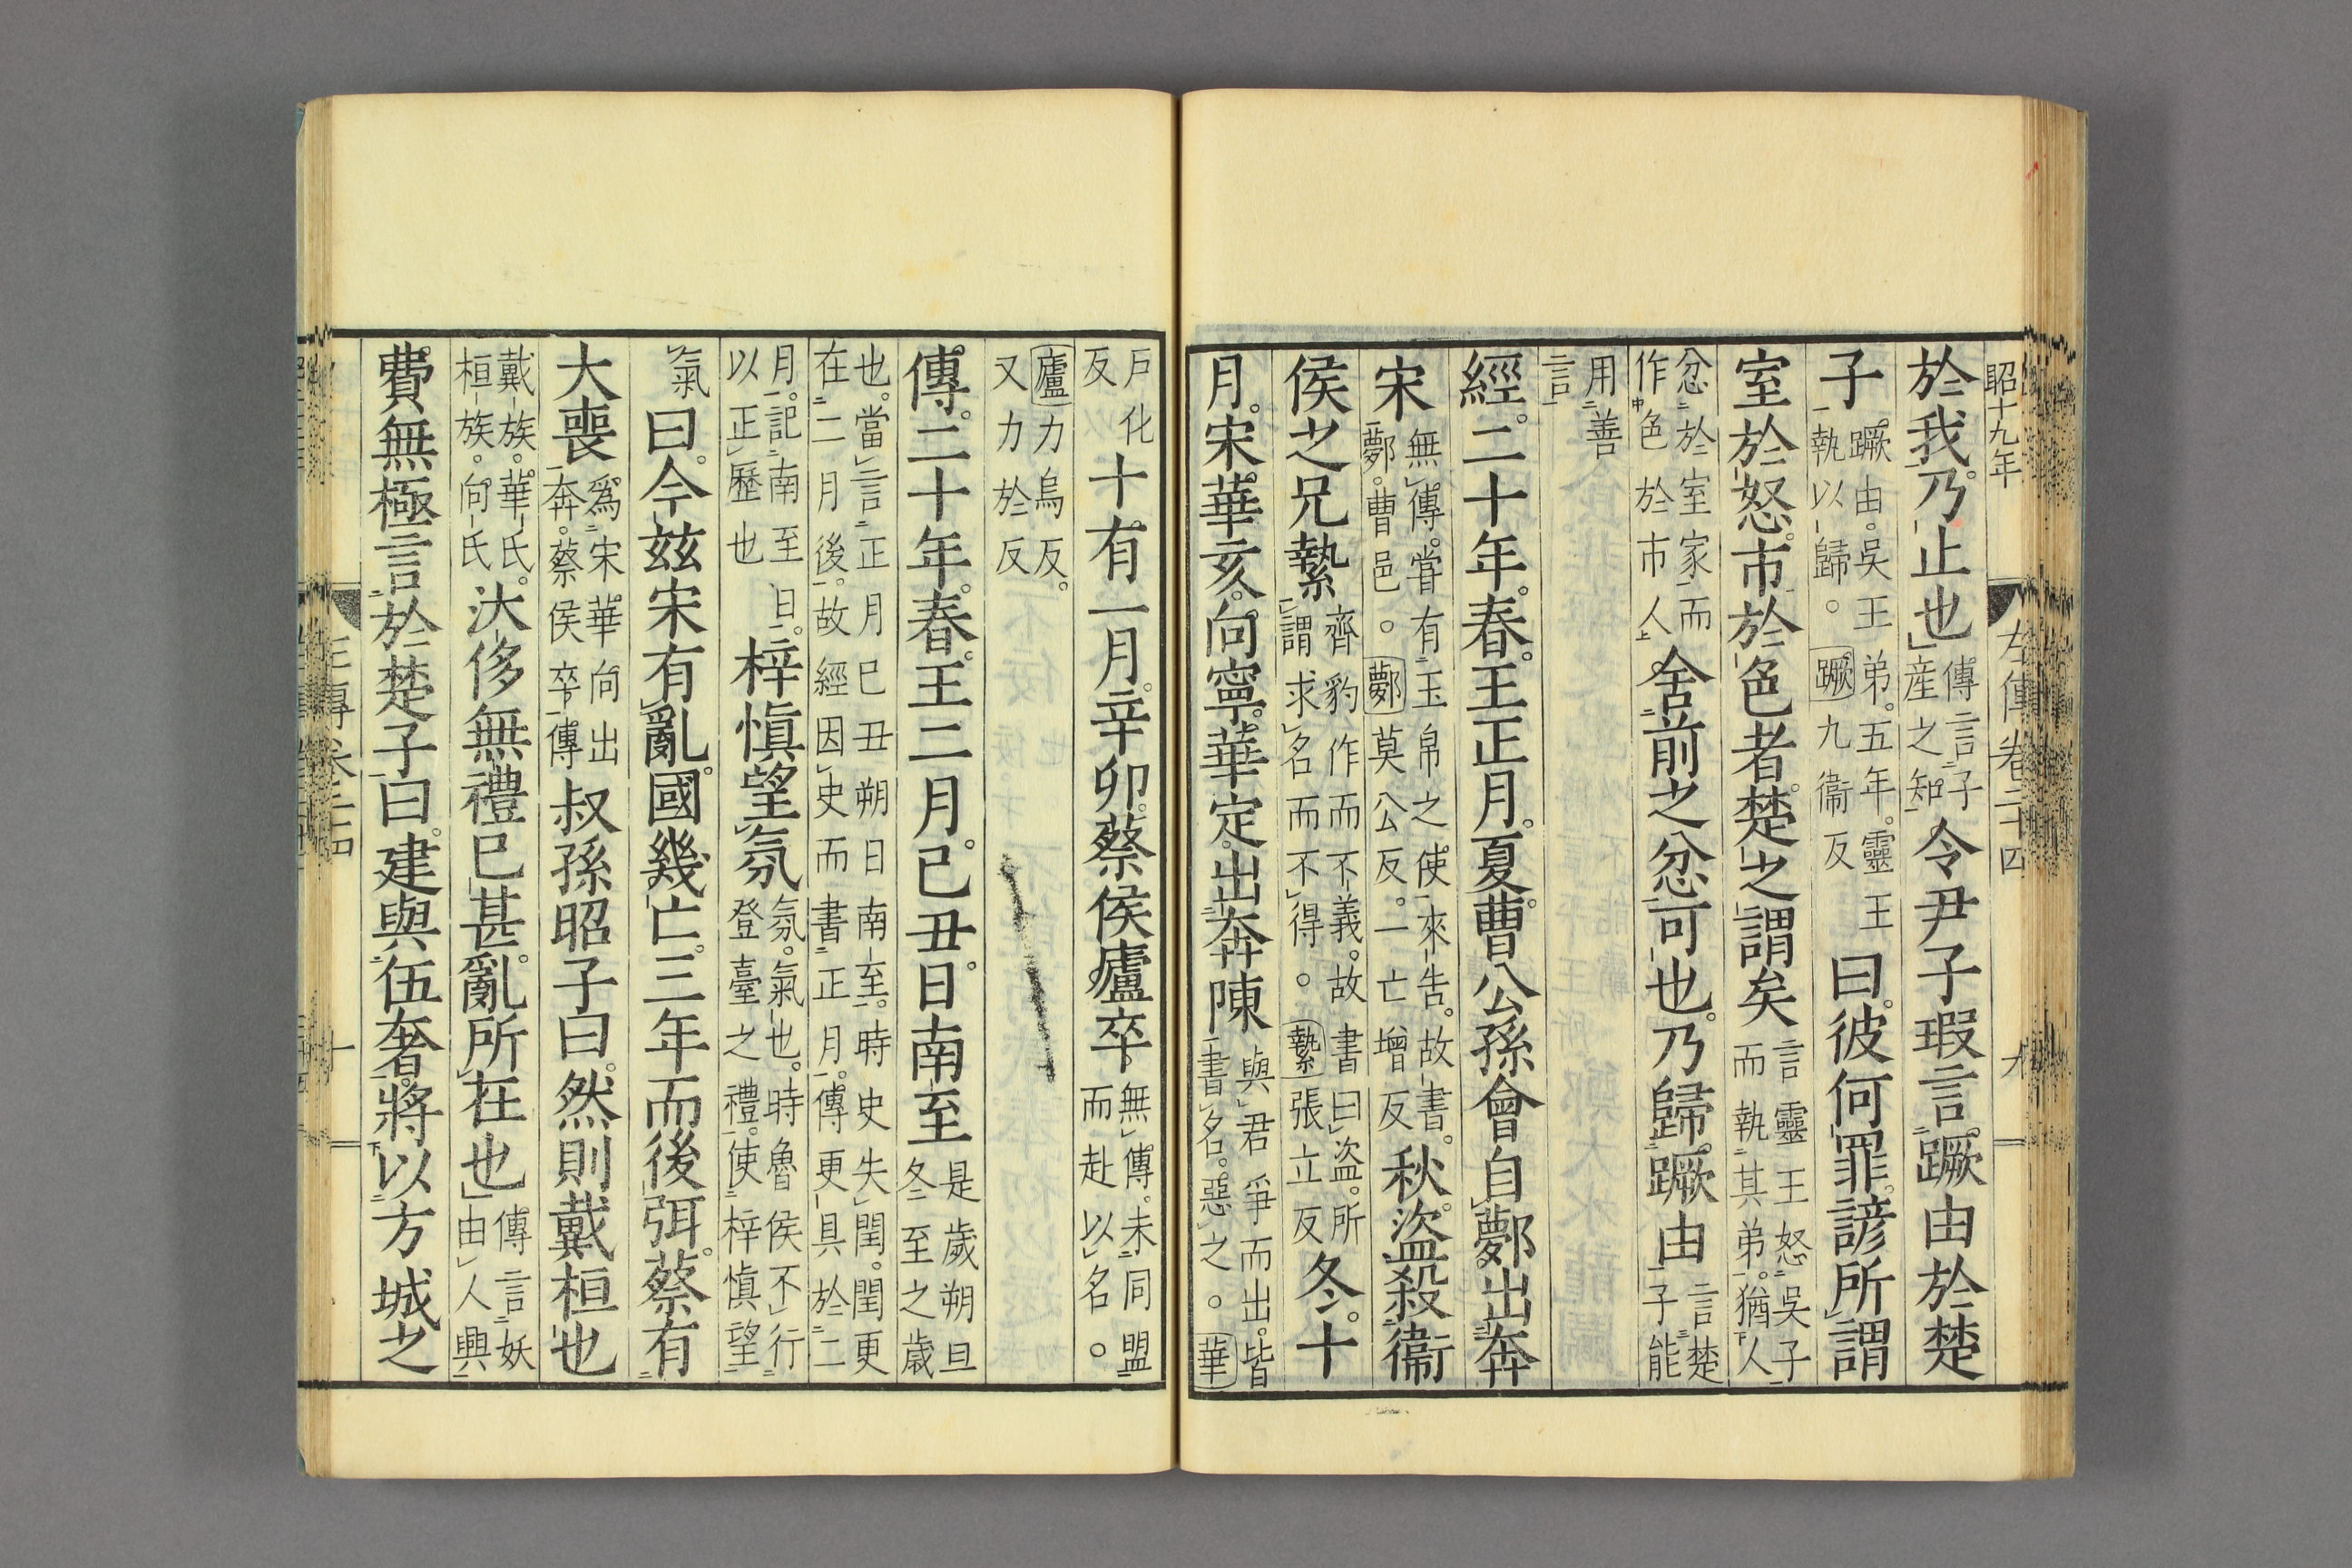 昭十九年
左傳卷二十四
九
於我乃止也傳言子産之知令尹子瑕言蹶由於楚
子蹶由吳王弟五年靈王執以歸。蹶九衞反曰彼何罪諺所謂
室於怒市於色者楚之謂矣言靈王怒吳子而執其弟猶人
忿於室家而作色於市人舍前之忿可也乃歸蹶由言楚子能
用善言
經二十年春王正月夏曹公孫會自鄸出奔
宋無傳嘗有玉帛之使來告故書鄸曹邑。鄸莫公反一亡增反秋盜殺衞
侯之兄縶齊豹作而不義故書曰盜所謂求名而不得。縶張立反冬十
月宋華亥向寧華定出奔陳與君爭而出皆書名惡之。華
戶化反十有一月辛卯蔡侯廬卒無傳未同盟而赴以名。
廬力烏反又力於反
傳二十年春王二月己丑日南至是歲朔旦冬至之歲
也當言正月己丑朔日南至時史失閏閏更在二月後故經因史而書正月傳更具於二
月記南至日以正歷也梓愼望氛氛氣也時魯侯不行登臺之禮使梓愼望
氣曰今玆宋有亂國幾亡三年而後弭蔡有
大喪爲宋華向出奔蔡侯卒傳叔孫昭子曰然則戴桓也
戴族華氏桓族向氏汰侈無禮已甚亂所在也傳言妖由人興
費無極言於楚子曰建與伍奢將以方城之